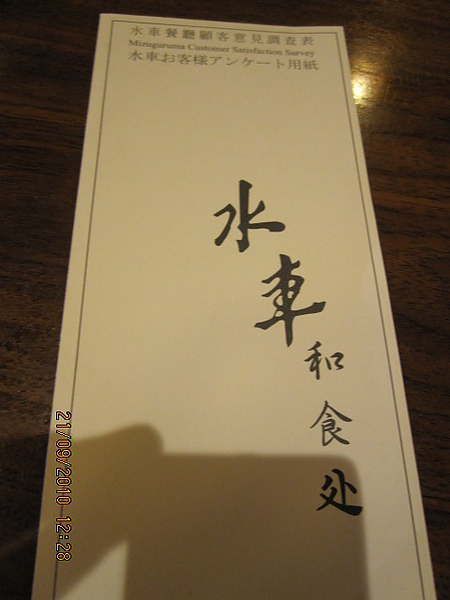 水車餐廳顧客意見調查表
Mizuguruma Customer Satisfaction Survey
水車お客様アンケート用紙
水車
和食处
21/09/2010 12:28